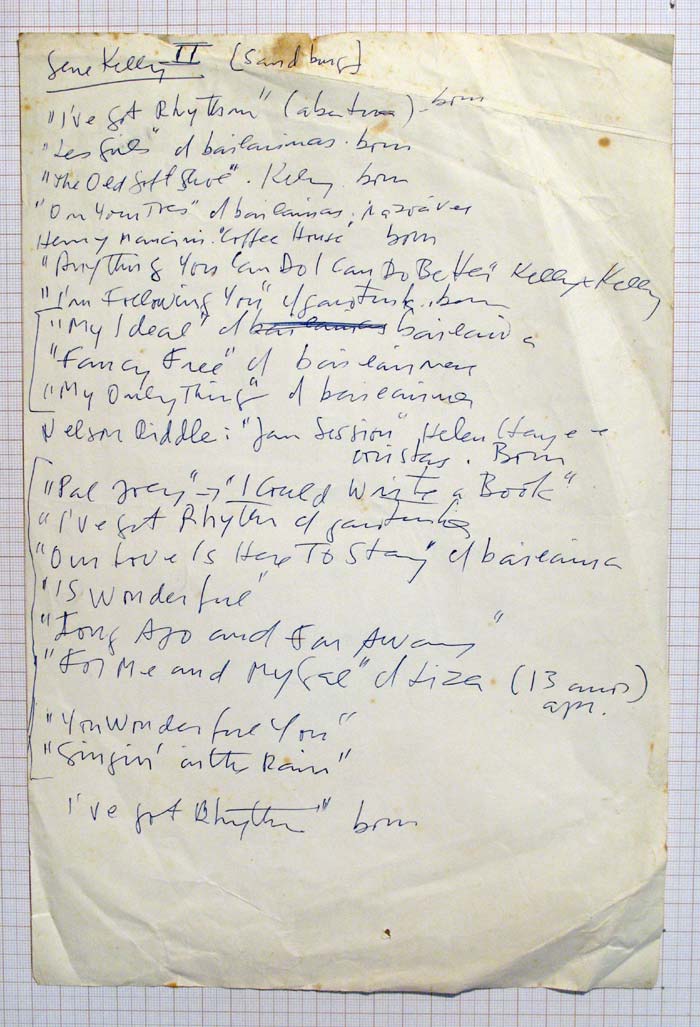 Gene Kelly II (Sandburg)
"I've got Rhythm" (abertura) - bom
"Les Girls" c/ bailarinas. bom
"The Old Soft Shoe". Kelly. bom
"On Your Toes" c/ bailarinas.
Henry Mancini. "Coffee House" bom
"Anything You Can Do I Can Do Better" Kelly x Kelly
"I'm Following You" c/ garotinha. bom
"My Ideal" c/ bailarina
"Fancy Free" c/ bailarinas
"My Only Thing" c/ bailarina
Nelson Riddle: "Jam Session" Helen
coristas. Bom
"Pal Joey" → "I Could Write a Book"
"I've got Rhythm c/ garotinha
"Our Love Is Here To Stay" c/ bailarina
"'S Wonderful"
"Long Ago and Far Away"
"For Me and My Gal" c/ Liza (13 anos)
apr.
"You Wonderful You"
"Singin' in the Rain"
I've got Rhythm" bom